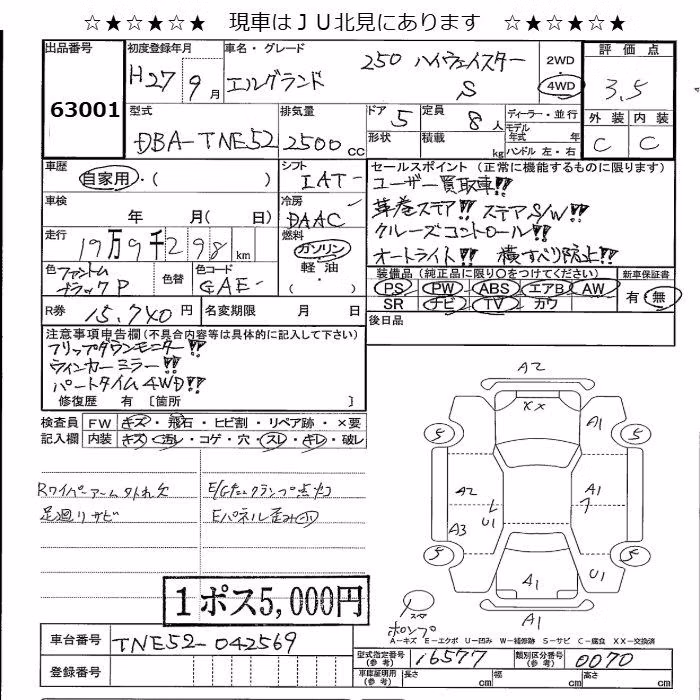 ☆★☆★☆★ 現車はJU北見にあります ☆★☆★☆★
出品番号 初度登録年月 車名・グレード 評価点
63001
H27年 9月 エルグランド 250 ハイウェイスター S
2WD
4WD
3.5
型式 排気量 ドア 定員 ディーラー・並行 外装 内装
DBA-TNE52 2500cc 5 8人
モデル年式 年
形状 積載 kg ハンドル 左・右
C C
車歴 シフト セールスポイント (正常に機能するものに限ります)
自家用・( ) IAT ユーザー買取車!!
車検 冷房 革巻ステア!! ステアS/W!!
年 月( 日) DAAC クルーズコントロール!!
走行 燃料 オートライト!! 横すべり防止!!
19万9千298km ガソリン
軽・油
装備品 (純正品に限り○をつけてください) 新車保証書
色 ファントムブラックP 色替 色コード GAE
PS PW ABS エアB AW 有・無
SR ナビ TV カワ
R券 15,740円 名変期限 月 日
後日品
注意事項申告欄 (不具合内容等は具体的に記入して下さい)
フリップダウンモニター!!
ウィンカーミラー!!
パートタイム4WD!!
修復歴 有 〔箇所 〕
検査員 FW キズ・飛石・ヒビ割・リペア跡・×要
記入欄 内装 キズ・汚レ・コゲ・穴・スレ・キレ・破レ
Rワイパーアーム外れ欠
足廻りサビ
E/Gチェックランプ点灯
Eパネル歪み小
A2
XX
A1
5 5
A2 A1
U1
A3
5 5
U1
A1
A1
スロ
ポンプ
1ポス5,000円
A-キズ E-エクボ U-凹み W-補修跡 S-サビ C-腐食 XX-交換済
車台番号 TNE52-042569
登録番号
型式指定番号(参考) 16577 類別区分番号(参考) 0070
車庫証明用(参考) 長さ cm 幅 cm 高さ cm